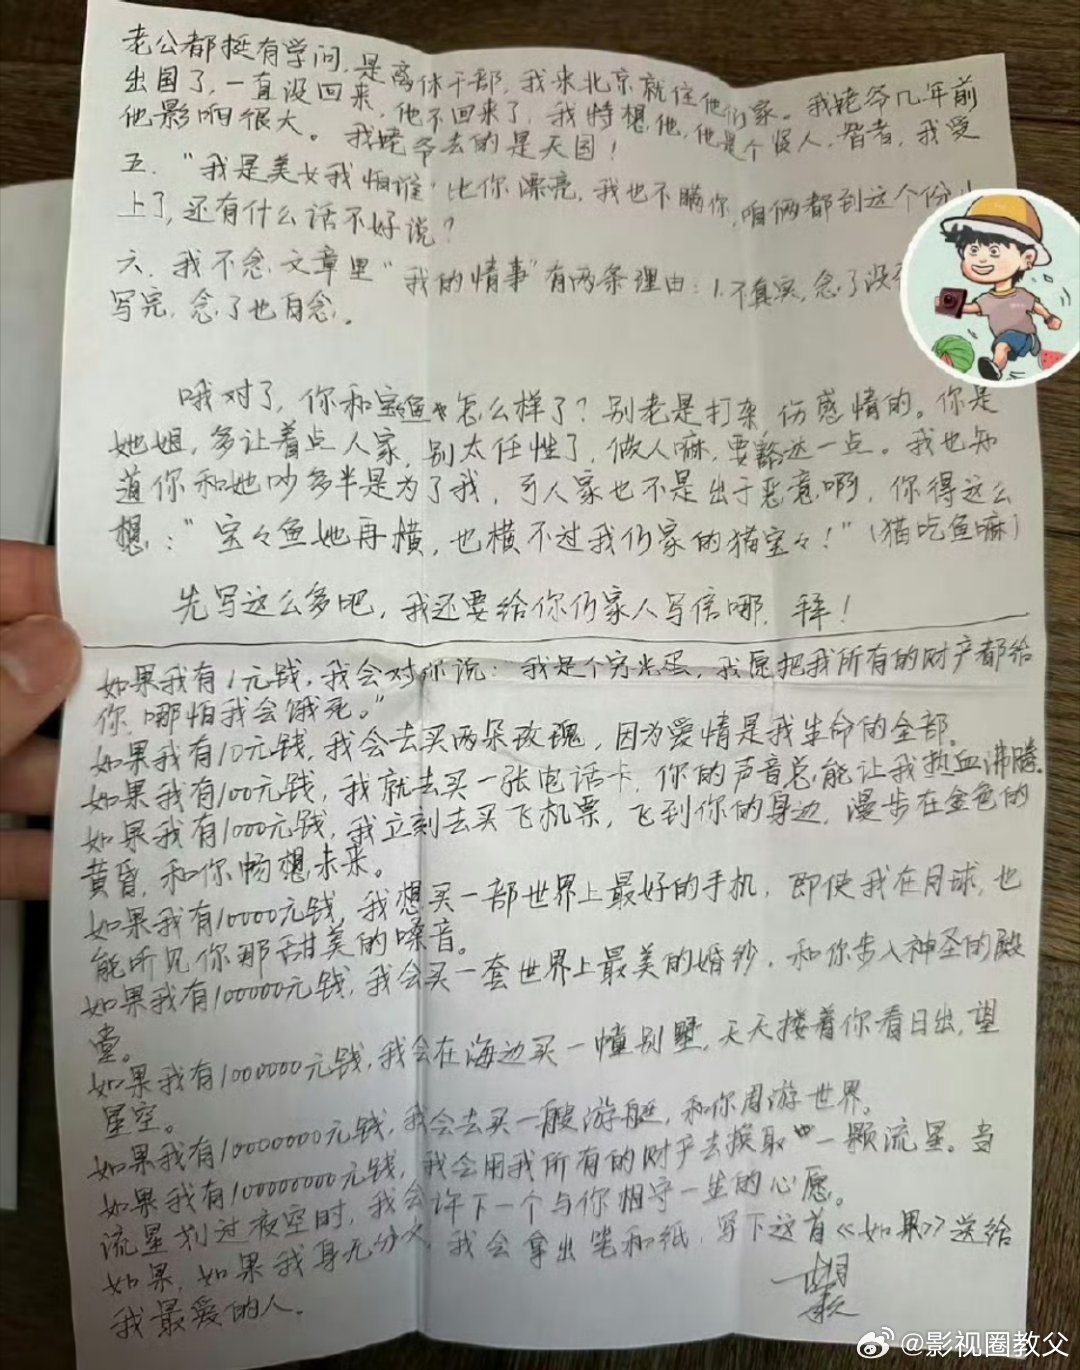 老公都挺有学问,是离休干部,我来北京就住他们家。我姥爷几年前
出国了,一直没回来,他不回来了,我特想他,他是个好人,智者,我受
他影响很大。我姥爷去的是天国!
五."我是美女我怕谁"比你漂亮,我也不瞒你,咱俩都到这个份儿
上了,还有什么话不好说?
六.我不念文章里"我的情事"有两条理由:1.不真实,念了没
写完,念了也白念。
哦对了,你和宝宝鱼怎么样了?别老是打架,伤感情的。你是
她姐,多让着点人家,别太任性了,做人嘛,要豁达一点。我也知
道你和她吵多半是为了我,可人家也不是出于恶意啊,你得这么
想:"宝々鱼她再横,也横不过我们家的猫宝々!"(猫吃鱼嘛)
先写这么多吧,我还要给你们家人写信哪.拜!
如果我有1元钱,我会对你说:我是个穷光蛋,我愿把我所有的财产都给
你,哪怕我会饿死。"
如果我有10元钱,我会去买两朵玫瑰,因为爱情是我生命的全部。
如果我有100元钱,我就去买一张电话卡,你的声音总能让我热血沸腾。
如果我有1000元钱,我立刻去买飞机票,飞到你的身边,漫步在金色的
黄昏,和你畅想未来。
如果我有10000元钱,我想买一部世界上最好的手机,即使我在月球,也
能听见你那甜美的嗓音。
如果我有100000元钱,我会买一套世界上最美的婚纱,和你步入神圣的殿
堂。
如果我有1000000元钱,我会在海边买一幢别墅,天天搂着你看日出,望
星空。
如果我有10000000元钱,我会去买一艘游艇,和你周游世界。
如果我有100000000元钱,我会用我所有的财产去换取一颗流星。当
流星划过夜空时,我会许下一个与你相守一生的心愿。
如果,如果我身无分文,我会拿出笔和纸,写下这首《如果》送给
我最爱的人。
@影视圈教父